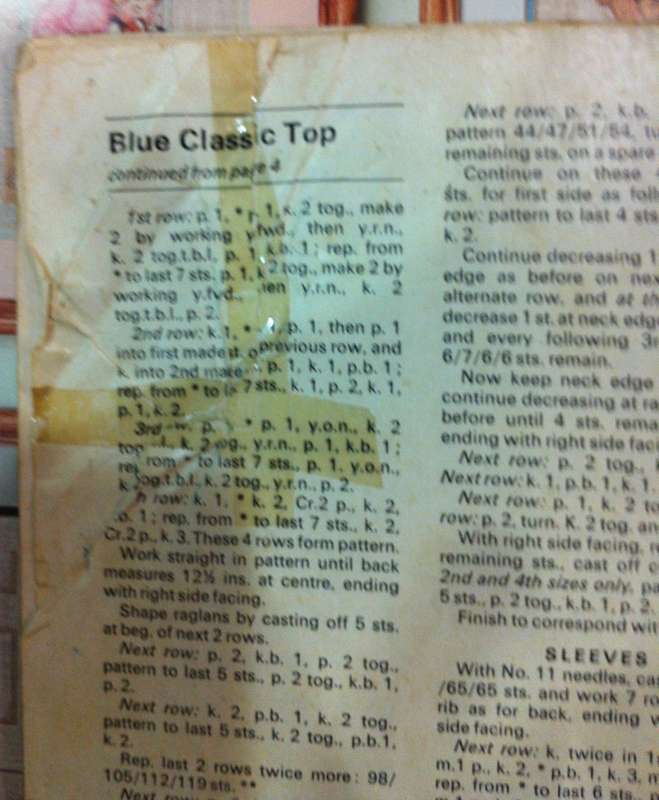 Blue Classic Top
continued from page 4
1st row: p. 1, * p. 1, k. 2 tog., make
2 by working y.fwd., then y.r.n.,
k. 2 tog.t.b.l., p. 1, k.b. 1; rep. from
* to last 7 sts. p. 1, k 2 tog., make 2 by
working y.fwd., then y.r.n., k. 2
tog.t.b.l., p. 2.
2nd row: k.1, * p. 1, then p. 1
into first made st. of previous row, and
k. into 2nd made p. 1, k. 1, p.b. 1;
rep. from * to last 7 sts., k. 1, p. 2, k. 1,
p. 1, k. 2.
3rd row: p. * p. 1, y.o.n., k. 2
k. 2 tog., y.r.n., p. 1, k.b. 1;
from * to last 7 sts., p. 1, y.o.n.,
k. tog.t.b.l., k. 2 tog., y.r.n., p. 2.
row: k. 1, * k. 2, Cr.2 p., k. 2,
1; rep. from * to last 7 sts., k. 2,
Cr.2 p., k. 3. These 4 rows form pattern.
Work straight in pattern until back
measures 12½ ins. at centre, ending
with right side facing.
Shape raglans by casting off 5 sts.
at beg. of next 2 rows.
Next row: p. 2, k.b. 1, p. 2 tog.,
pattern to last 5 sts., p. 2 tog., k.b. 1,
p. 2.
Next row: k. 2, p.b. 1, k. 2 tog.,
pattern to last 5 sts., k. 2 tog., p.b.1,
k. 2.
Rep. last 2 rows twice more: 98/
105/112/119 sts. **
Next
Next row: p. 2, k.b.
pattern 44/47/51/54,
remaining sts. on a spare
Continue on these
sts. for first side as
row: pattern to last 4 sts
k. 2.
Continue decreasing 1
edge as before on
alternate row, and at
decrease 1 st. at neck edge
and every following
6/7/6/6 sts. remain.
Now keep neck edge
continue decreasing at
before until 4 sts.
ending with right side
Next row: p. 2 tog.,
Next row: k. 1, p.b. 1, k. 1.
Next row: p. 1, k. 2
row: p. 2, turn. K. 2 tog.
With right side facing,
remaining sts., cast off
2nd and 4th sizes only,
5 sts., p. 2 tog., k.b. 1, p. 2.
Finish to correspond
SLEEVES
With No. 11 needles,
/65/65 sts. and work 7
rib as for back, ending
side facing.
Next row: k. twice in
m.1 p., k. 2, * p.b. 1, k. 3,
rep. from * to last 6 sts.,